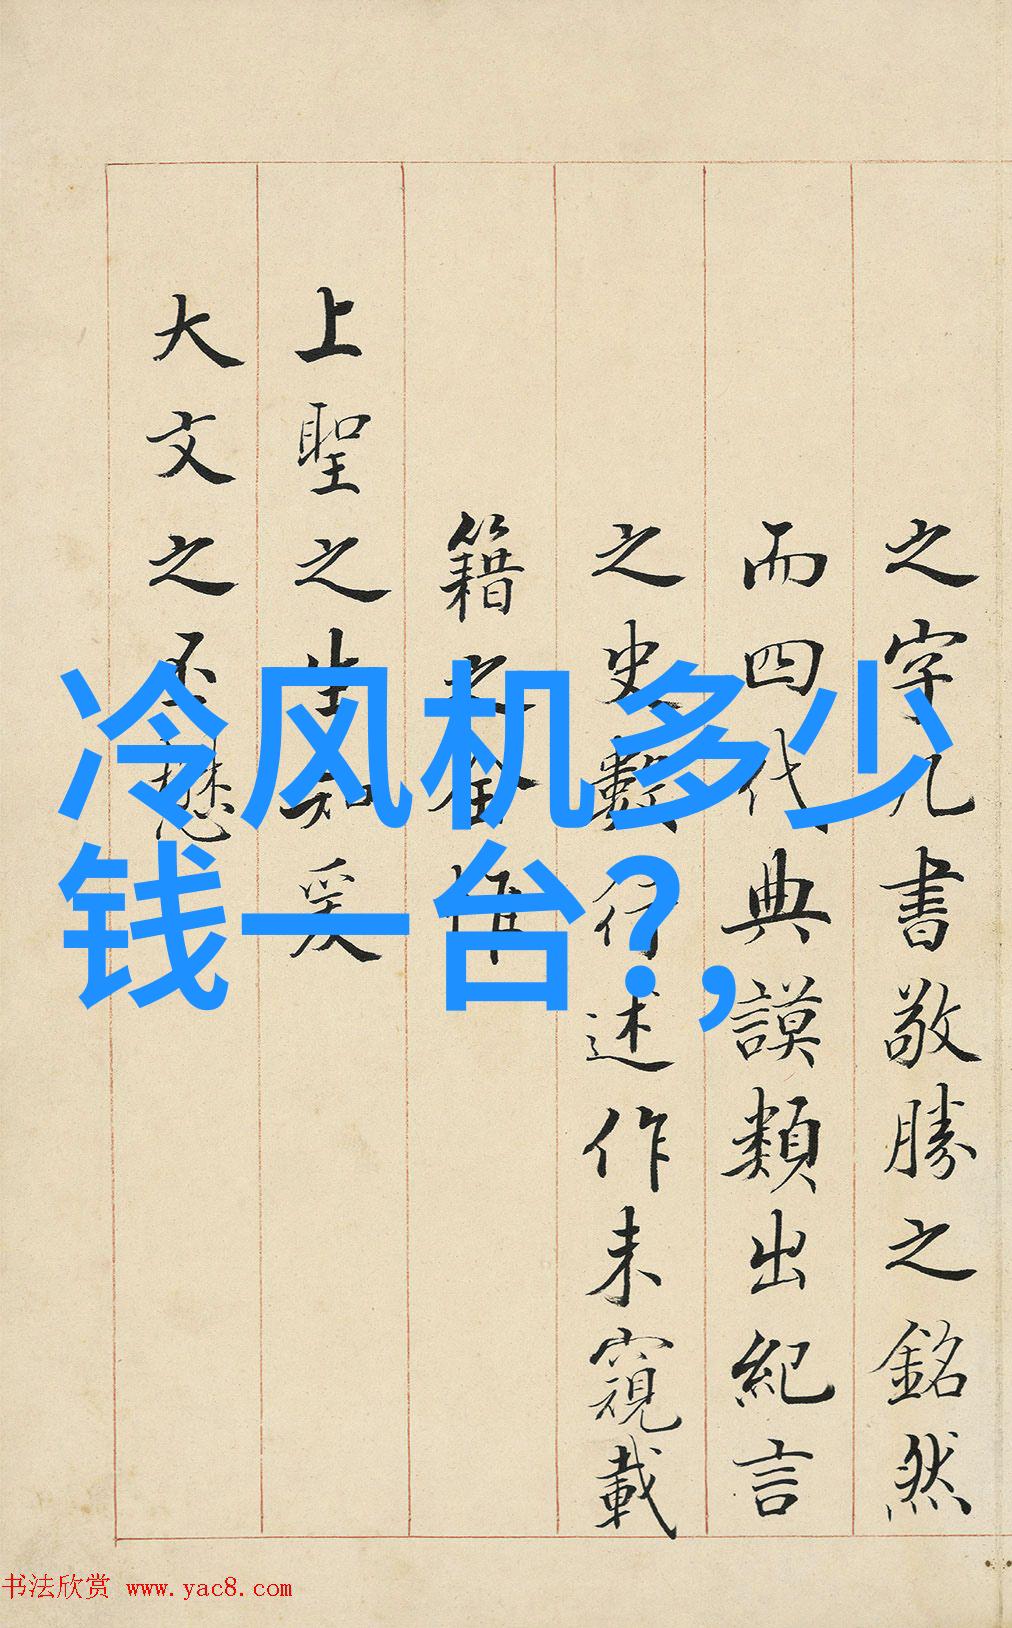 之字几書敬勝之銘然
而四代典謨類出紀言
之史數行述作未窺載
籍之全惟
上聖之生知爰
大文之丕懋
冷风机多少
钱一台?,
书法欣赏 www.yac8.com